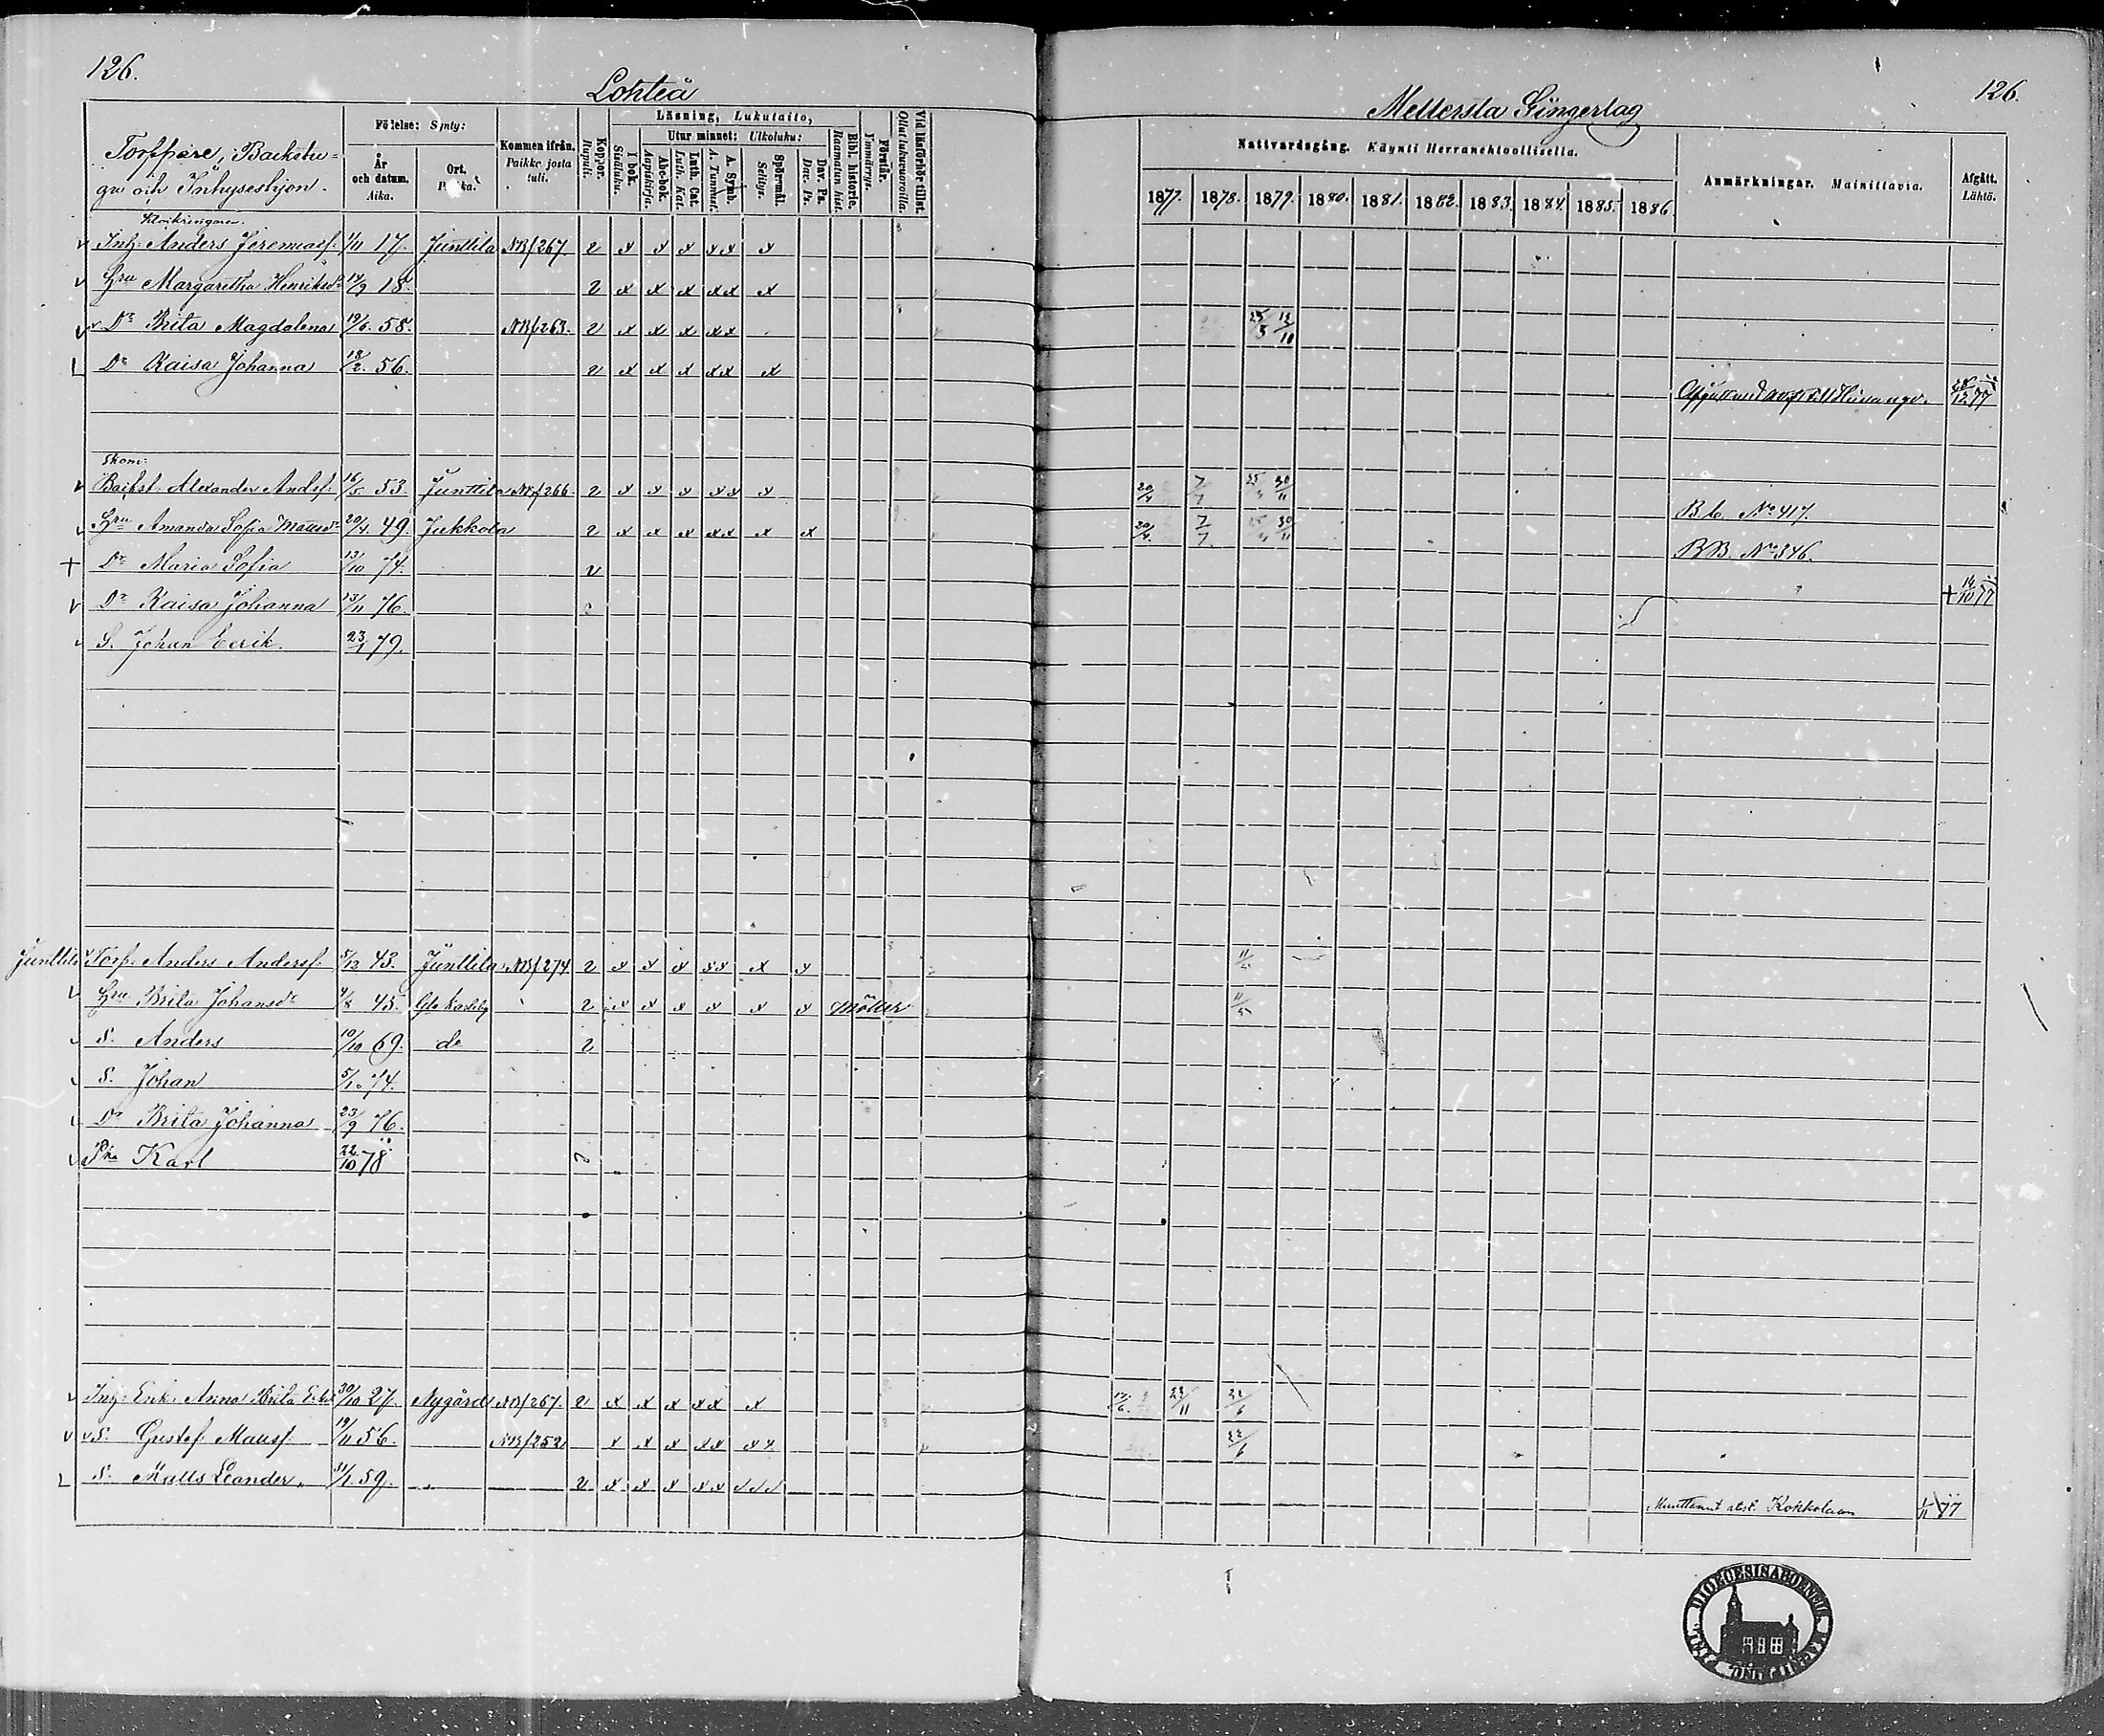 126.
Lohteå
Torppare, Backstu-
gu och Inhyseshjon.
Födelse: Synty:
År
och datum.
Aika.
Ort.
Kommen ifrån.
Paikka josta
tuli.
Koppor.
Rupuli.
Läsning, Lukutaito,
I bok.
Sisäluku.
Utur minnet: Ulkoluku:
Abc-bok.
Aapiskirja.
Luth. Cat.
Luth. Kat.
A. Symb.
A. Tunnust.
Spörsmål.
Selitys.
Dav. Ps.
Dav. Ps.
Bibl. historie.
Raamatun hist.
Förstår.
Ymmärrys.
Vid läsförhör tillst.
Ollut lukuvuoroilla.
Inh: Anders Jeremiasf. 1/11 17. Junttila NB/267. v x x x x x x
Hru Margaretha Henriksdr 14/9 18. v x x x x x x
Dr Brita Magdalena 19/6. 58. NB/263. v x x x x x
Dr Kaisa Johanna 18/2. 56. v x x x x x x
Skom:
Backst. Alexander Andsf. 16/5 53. Junttila NB/266. v x x x x x x
Hru Amanda Sofia Mattsdr 20/4. 49. Jukkola v x x x x x x x
+ Dr Maria Sofia 13/10 74. v
Dr Kaisa Johanna 23/11 76.
S. Johan Eerik. 23/1 79.
Junttila Torp. Anders Andersf. 5/12 43. Junttila NB/274 v x x x x x x x
Hru Brita Johansdr 4/8 45. Gla Karleby v x x x x x x Möller
S. Anders 10/10 69. do v
S. Johan 5/10 74.
Dr Brita Johanna 23/9 76.
Pka Karl 22/10 78
Inh: Enk. Anna Brita 30/10 27. Nygård NB/267. v x x x x x x
S. Gustef Mattsf. 19/11 56. NB/252 x x x x x x x
S. Matts Leander. 31/1. 59. v x x x x x x x x
126.
Mellersta Gingerlag
Nattvardsgång. Käynti Herranehtoollisella.
1877. 1878. 1879. 1880. 1881. 1882. 1883. 1884. 1885. 1886.
Anmärkningar. Mainittavia.
Afgått.
Lähtö.
25/5 12/10
28/12 77
20/4 7/7 30/11
B.b. No 417.
20/4. 7/7. 30/11
BB. No 346.
+ 14/10 77
11/5
11/5
23/11 22/6
22/6
Muuttanut Kokkolaan 1/11 77